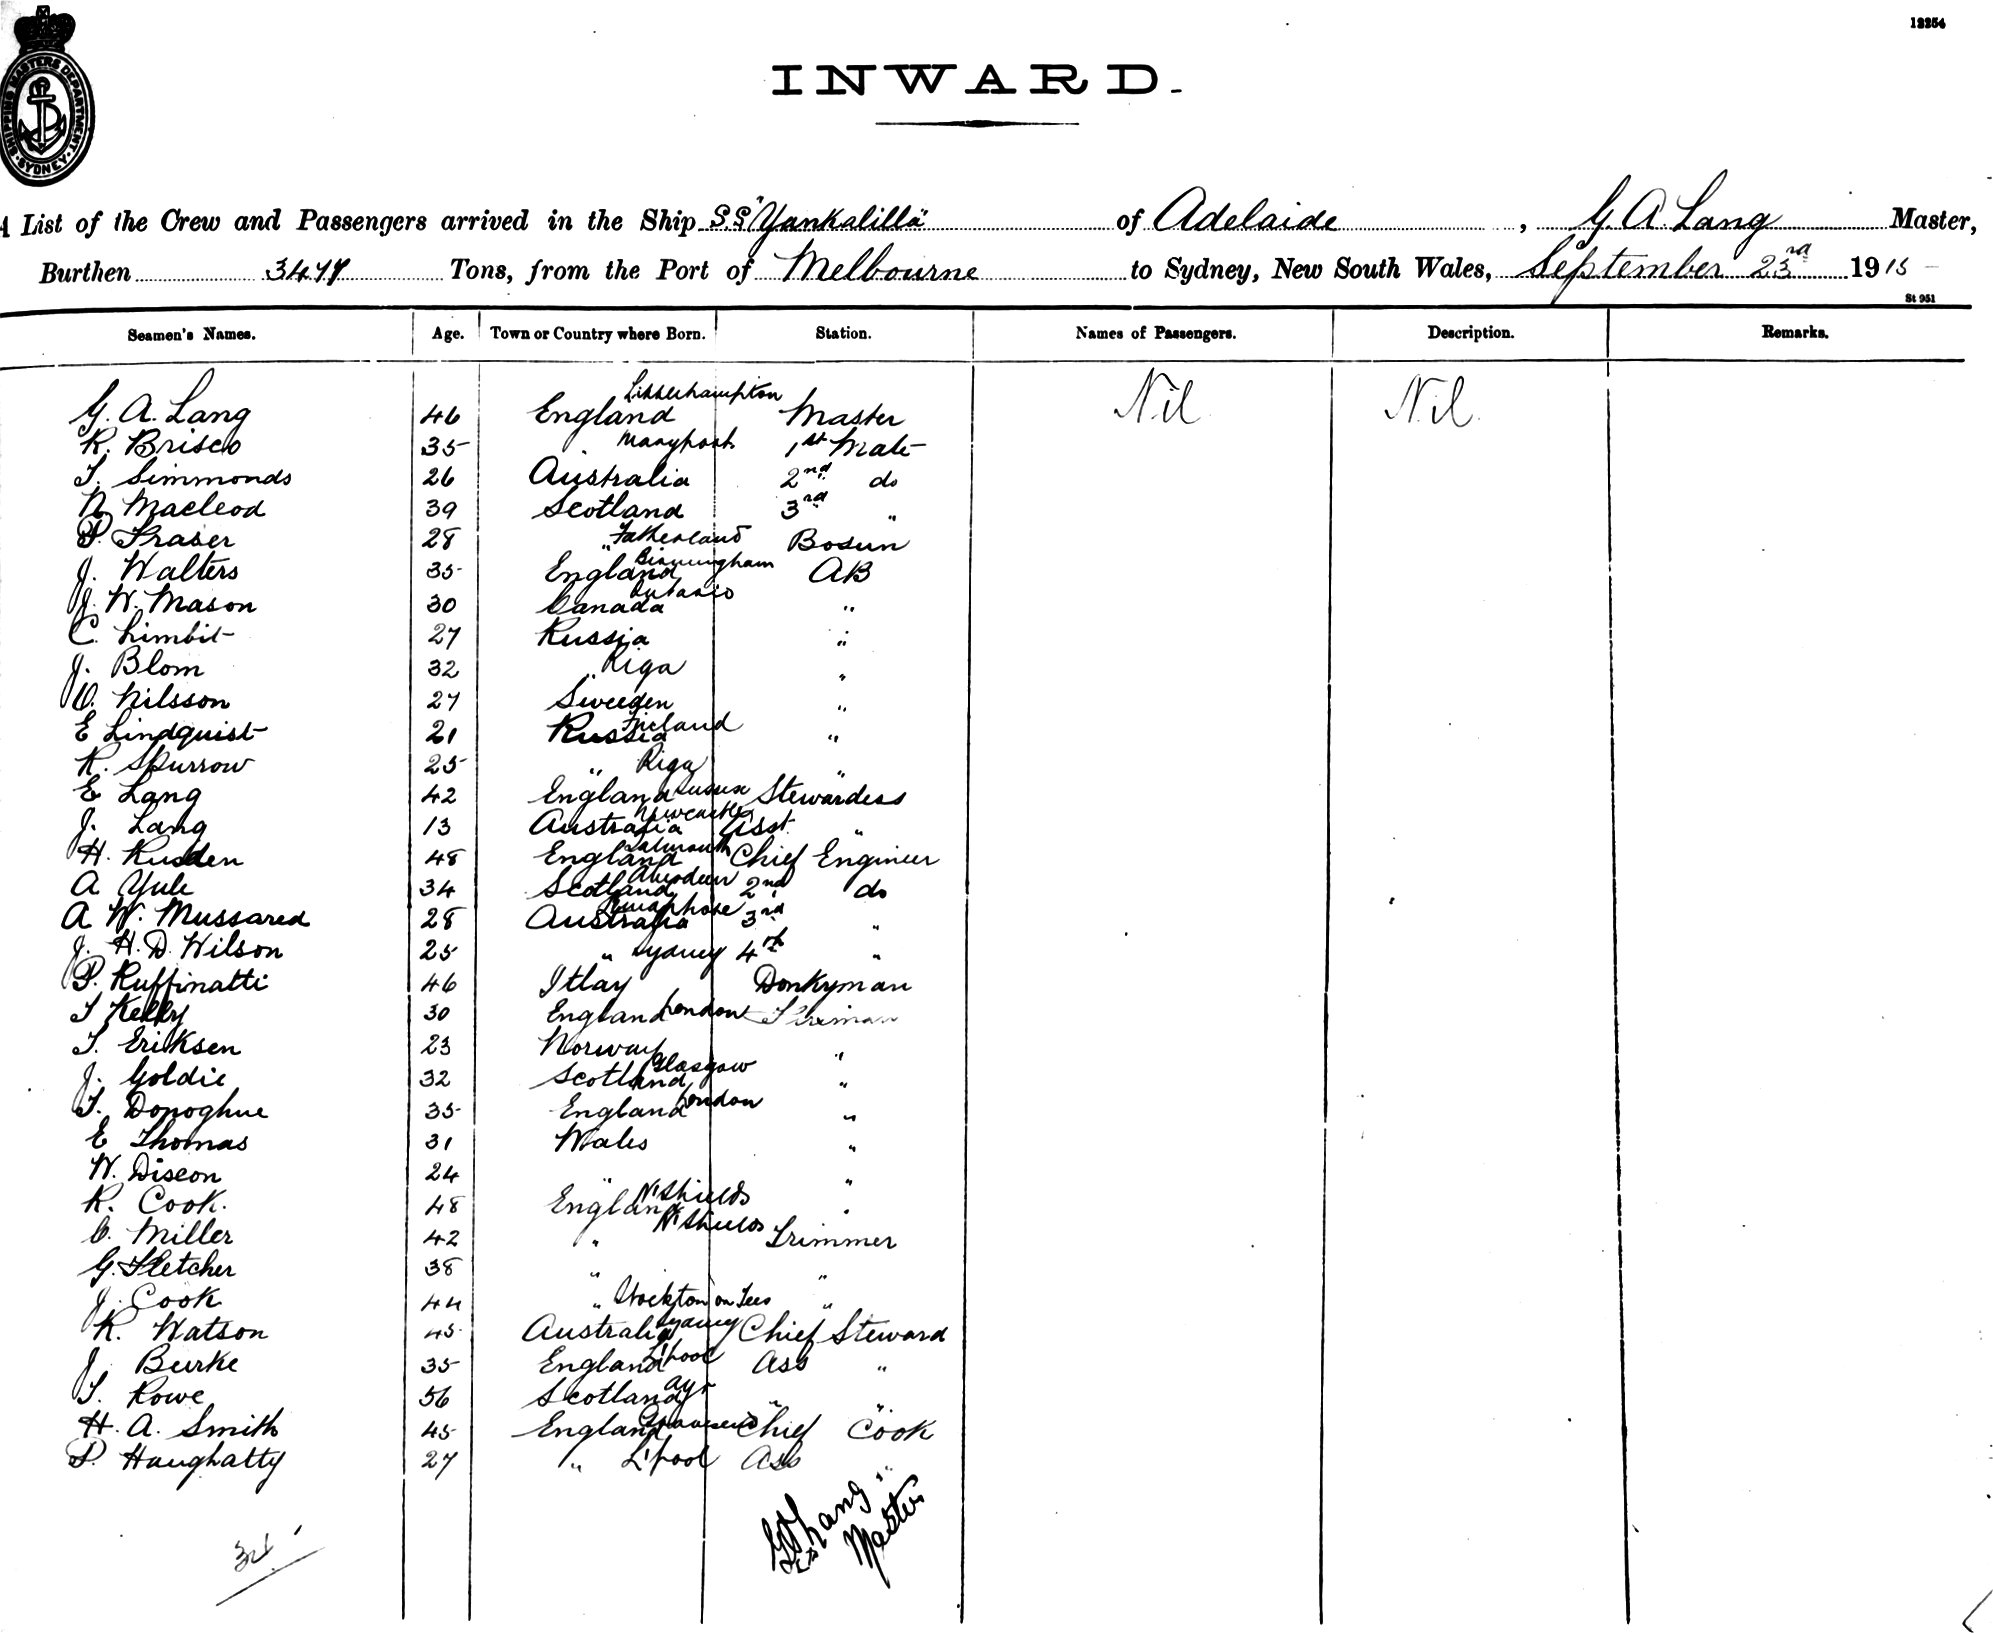 12254
SHIPPING MASTERS DEPARTMENT · SYDNEY ·
INWARD.
A List of the Crew and Passengers arrived in the Ship S.S "Yankalilla" of Adelaide, G. A. Lang Master,
Burthen Tons, from the Port of Melbourne to Sydney, New South Wales, September 23rd 1915
St 951
Seamen's Names. Age. Town or Country where Born. Station. Names of Passengers. Description. Remarks.
G. A. Lang 46 England Littlehampton Master Nil Nil
R. Brisco 35 " Maryport 1st Mate
T. Simmonds 26 Australia 2nd do
N. Macleod 39 Scotland 3rd "
P. Fraser 28 " Bosun
J. Walters 35 England Birmingham AB
J. W. Mason 30 Canada Ontario "
C. Limbit 27 Russia "
J. Blom 32 " Riga "
O. Nilsson 27 Sweeden "
E Lindquist 21 Russia Finland "
R. Spurrow 25 " Riga "
E Lang 42 England Sussex Stewardess
J. Lang 13 Australia Newcastle Asst. "
H. Rusden 48 England Falmouth Chief Engineer
A Yule 34 Scotland Aberdeen 2nd do
A W. Mussared 28 Australia Semaphore 3rd "
J. H. D. Wilson 25 " Sydney 4th "
P. Ruffinatti 46 Itlay Donkyman
T Kelly 30 England London Fireman
T. Eriksen 23 Norway "
J. Goldie 32 Scotland Glasgow "
T. Donoghue 35 England London "
E Thomas 31 Wales "
W. Diseon 24 " "
R. Cook. 48 England N. Shields "
C. Miller 42 " N. Shields Trimmer
G. Fletcher 38 " "
J. Cook 44 " Stockton on Tees "
R. Watson 45 Australia Sydney Chief Steward
J. Burke 35 England L'pool Ass "
T. Rowe 56 Scotland Ayr " "
H. A. Smith 45 England Gravesend Chief Cook
P. Haughatty 27 " L'pool Ass "
G A Lang
Master